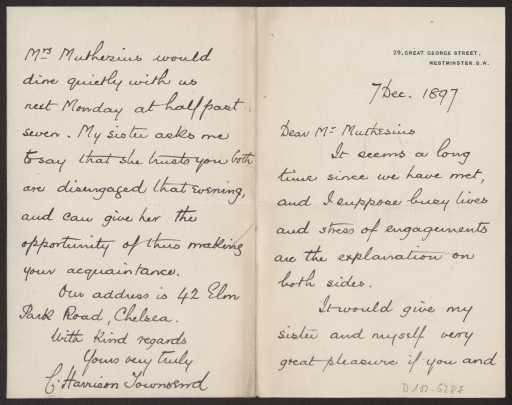 29, GREAT GEORGE STREET,
WESTMINSTER. S.W.
7 Dec. 1897
Dear Mr. Muthesius
It seems a long
time since we have met,
and I suppose busy lives
and stress of engagements
are the explanation on
both sides.
It would give my
sister and myself very
great pleasure if you and
Mrs Muthesius would
dine quietly with us
next Monday at half past
seven. My sister asks me
to say that she trusts you both
are disengaged that evening,
and can give her the
opportunity of thus making
your acquaintance.
Our address is 42 Elm
Park Road, Chelsea.
With kind regards
Yours very truly
C. Harrison Townsend
D 102-5287